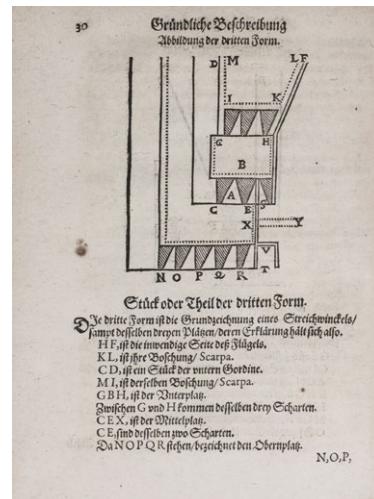 30
Gründliche Beschreibung
Abbildung der dritten Form.
D M L F
I K
G H
B
A
C E S
X Y
V
N O P Q R T
Stück oder Theil der dritten Form.
DIe dritte Form ist die Grundzeichnung eines Streichwinckels/
sampt desselben dreyen Plätzen/deren Erklärung hält sich also.
H F, ist die inwendige Seite deß Flügels.
K L, ist ihre Boschung/ Scarpa.
C D, ist ein Stück der vntern Gordine.
M I, ist derselben Boschung/ Scarpa.
G B H, ist der Vnterplatz.
Zwischen G vnd H kommen desselben drey Scharten.
C E X, ist der Mittelplatz.
C E, sind desselben zwo Scharten.
Da N O P Q R stehen/bezeichnet den Obernplatz.
N, O, P,